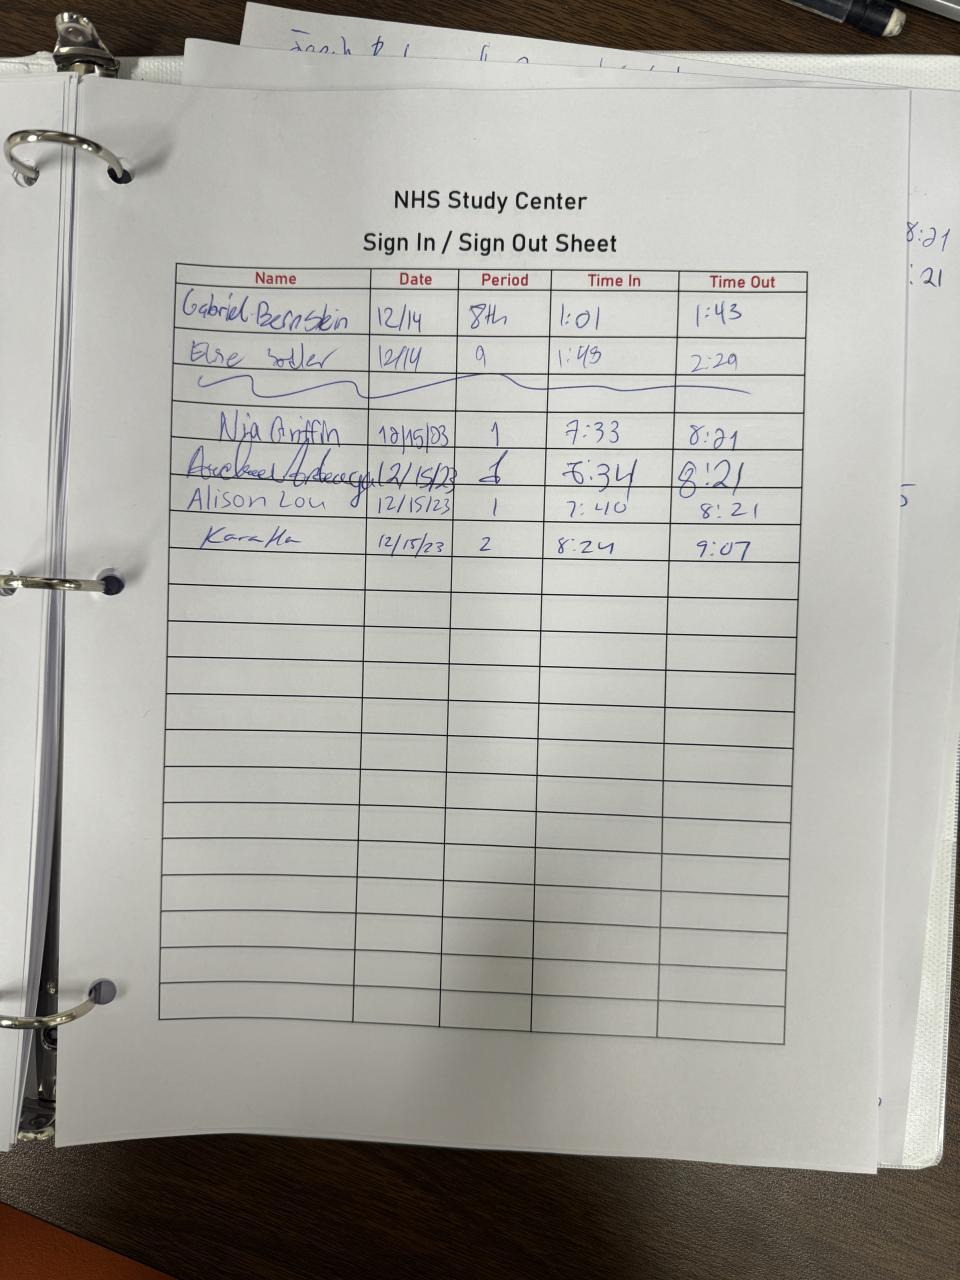 NHS Study Center
Sign In / Sign Out Sheet
Name Date Period Time In Time Out
Gabriel Bernstein 12/14 8th 1:01 1:43
Else 12/14 9 1:43 2:29
Nja Griffin 12/15/23 1 7:33 8:21
12/15/23 1 7:34 8:21
Alison Lou 12/15/23 1 7:40 8:21
Kara Ha 12/15/23 2 8:24 9:07
8:21
:21